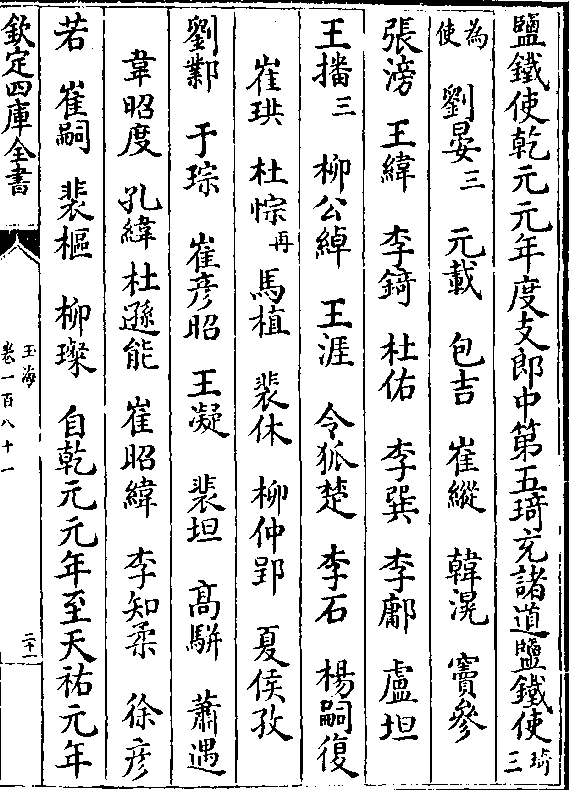 鹽鐵使乾元元年度支郎中第五琦充諸道鹽鐵使琦三
為使 劉晏三 元載 包吉 崔縱 韓滉 竇參
張滂 王緯 李錡 杜佑 李巽 李鄘 盧坦
王播三 柳公綽 王涯 令狐楚 李石 楊嗣復
崔珙 杜悰再 馬植 裴休 柳仲郢 夏侯孜
劉鄴 于琮 崔彦昭 王凝 裴坦 高駢 蕭遇
韋昭度 孔緯 杜遜能 崔昭緯 李知柔 徐彦
若 崔嗣 裴樞 柳璨 自乾元元年至天祐元年
欽定四庫全書
玉海
卷一百八十一
二十一